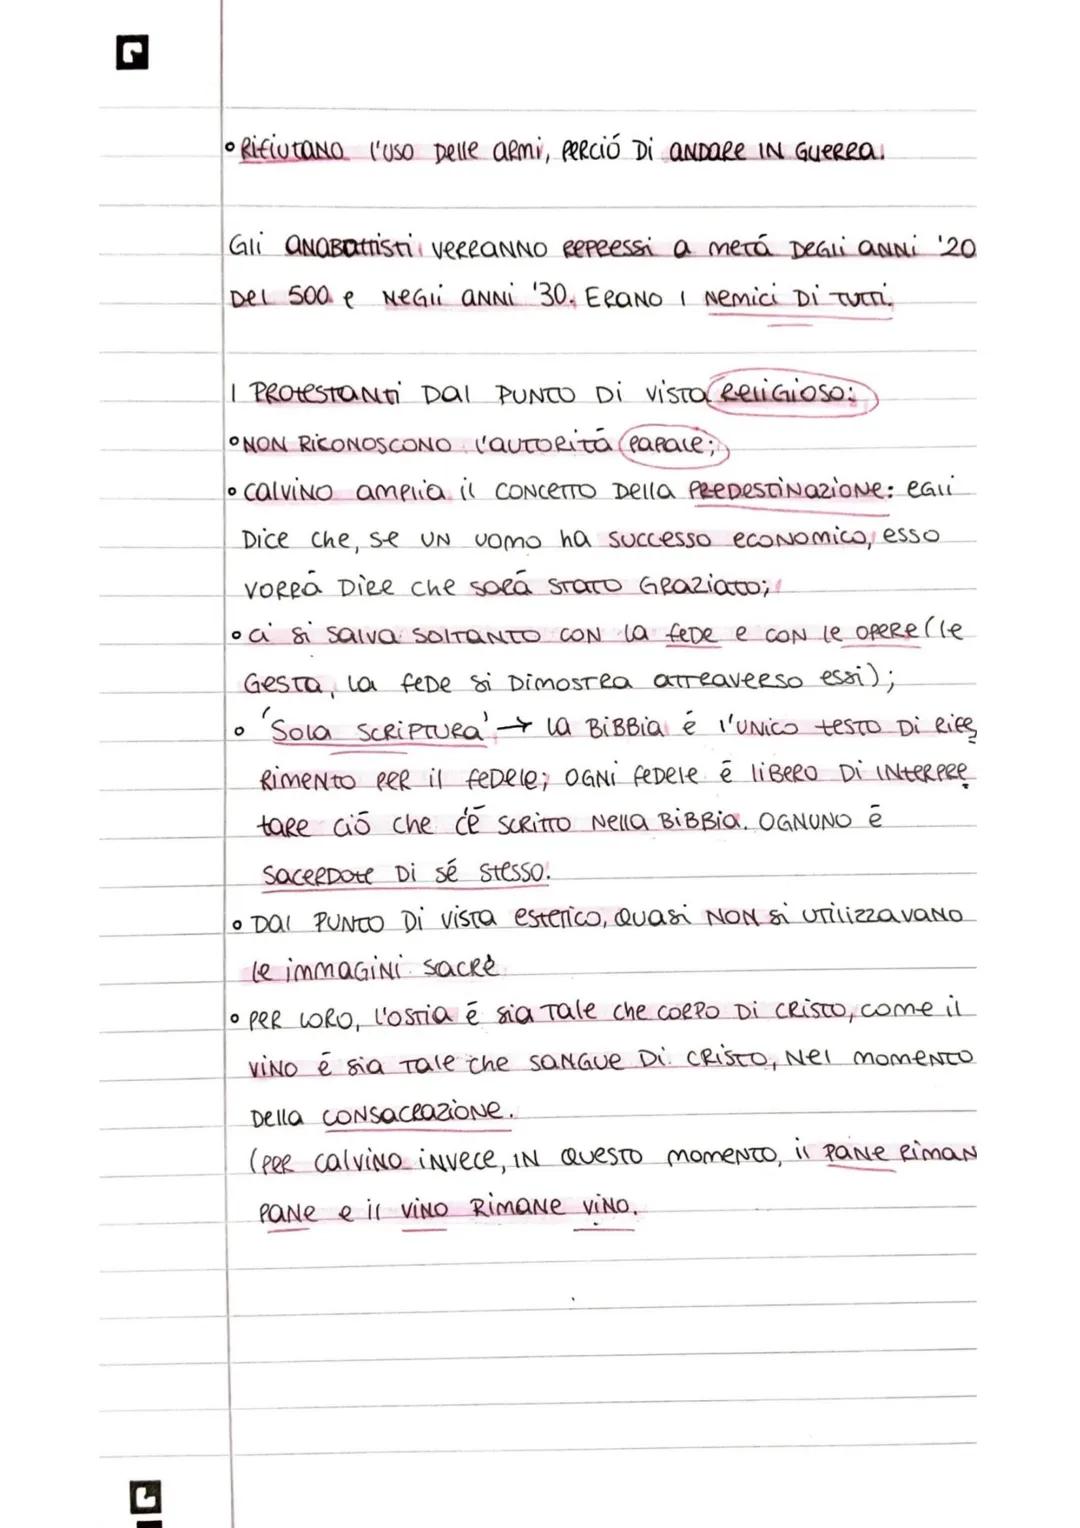 • Rifiutano l'uso delle armi, perció di andare in guerra.
Gli anabattisti verranno repressi a metá degli anni '20
del 500 e negli anni '30. Erano i nemici di tutti.
I protestanti dal punto di vista religioso:
• non riconoscono l'autoritá papale;
• Calvino amplia il concetto della predestinazione: egli
dice che, se un uomo ha successo economico, esso
vorrá dire che sará stato graziato;
• ci si salva soltanto con la fede e con le opere (le
gesta, la fede si dimostra attraverso essi);
• 'Sola scriptura' → la Bibbia é l'unico testo di rife
rimento per il fedele; ogni fedele é libero di interpre
tare ció che c'é scritto nella Bibbia. Ognuno é
sacerdote di sé stesso.
• Dal punto di vista estetico, quasi non si utilizzavano
le immagini sacre
• Per loro, l'ostia é sia tale che corpo di Cristo, come il
vino é sia tale che sangue di Cristo, nel momento
della consacrazione.
(per Calvino invece, in questo momento, il pane riman
pane e il vino rimane vino.